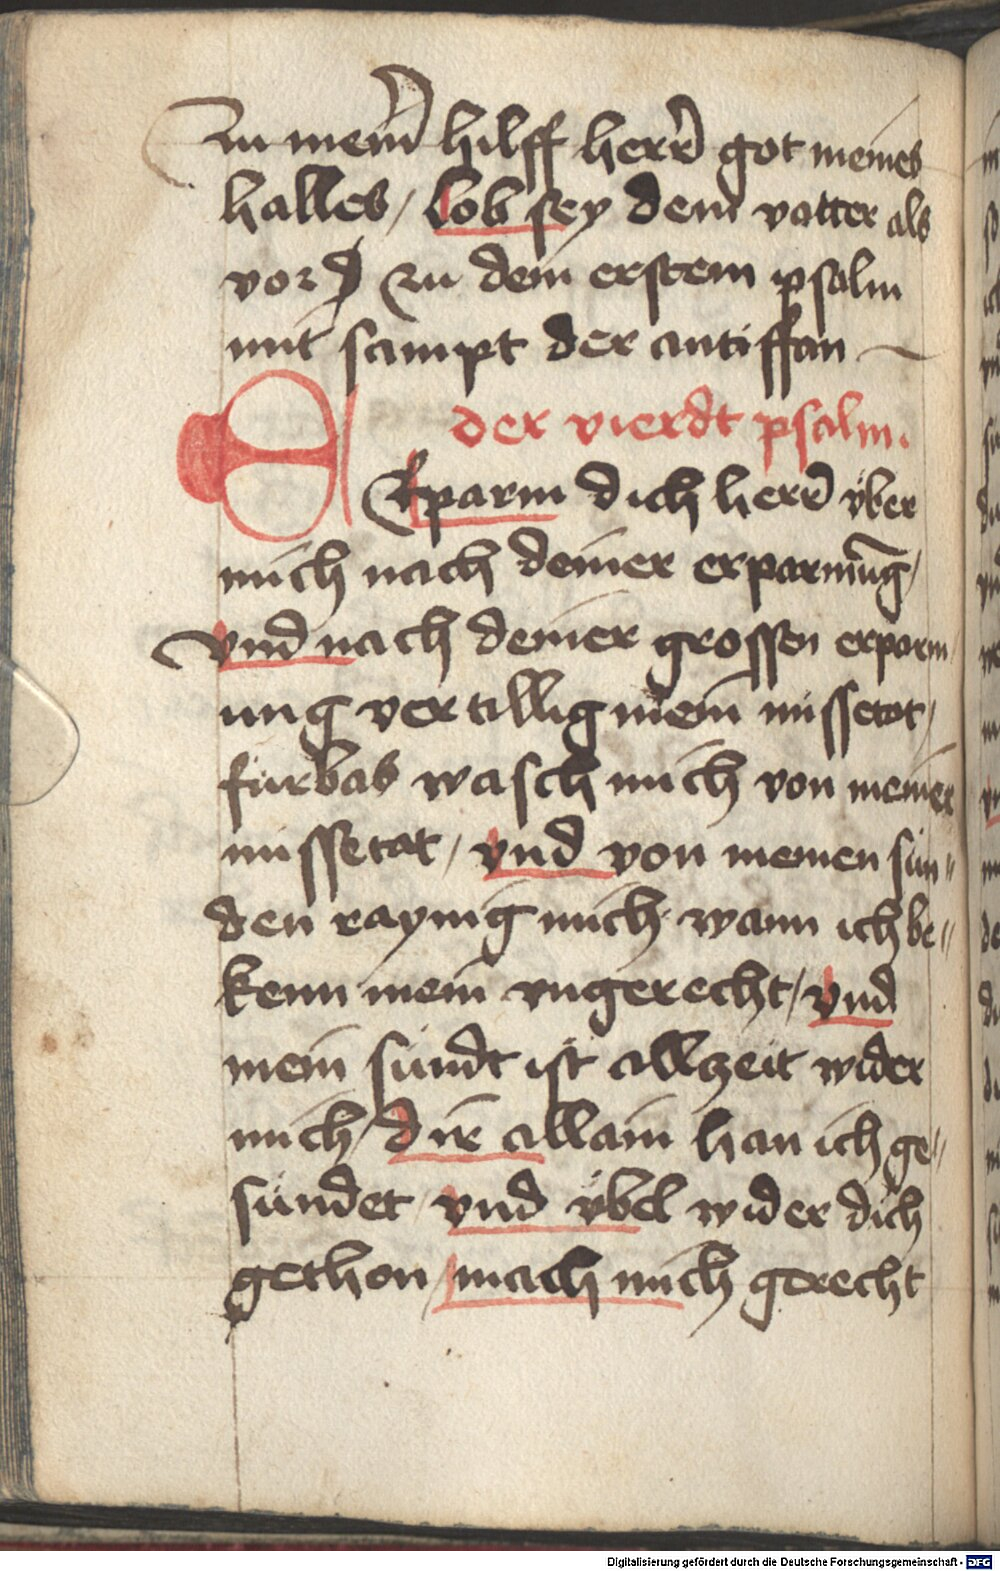 zu mein̄ hilff herr̄ got meines
halles / Lob sey dem vatter als
vor zu dem erstem psalm
mit sampt der antiffan
der vierdt psalm.
Erparm dich herr̄ vber
mich nach deiner erparmūg /
vnd nach deiner grossen erparm
ung vertillig mein missetat /
fürbas wasch mich von meiner
missetat / vnd von meinen sün„
den raynig mich wann ich be„
kenn mein vngerecht / vnd
mein sündt ist allzeit wider
mich / dir allain han ich ge„
sündet vnd vbel wider dich
gethon / mach mich gerecht
Digitalisierung gefördert durch die Deutsche Forschungsgemeinschaft - DFG